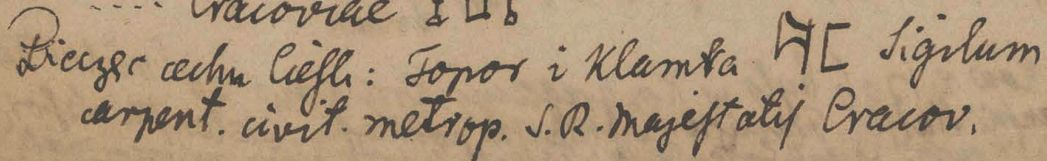 Cracoviae
Pieczęć cechu Cieśli: Topor i Klamka Sigilum
carpent. civit. metrop. S. R. Majestatis Cracov.